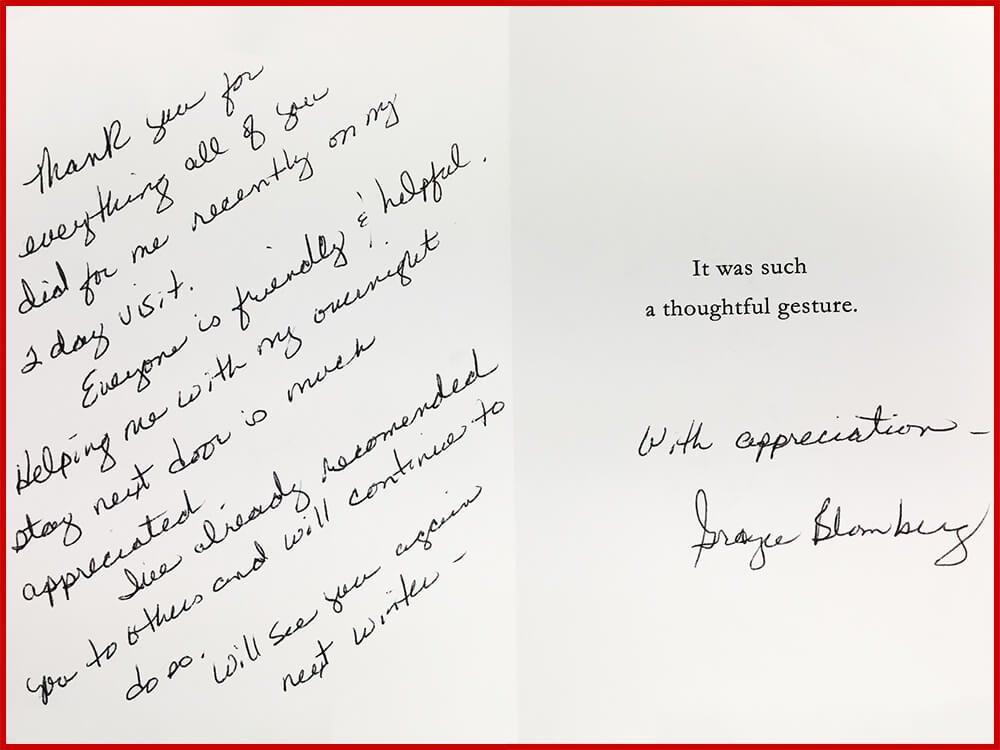 Thank you for
everything all of you
did for me recently on my
2 day visit.
Everyone is friendly & helpful.
Helping me with my overnight
stay next door is much
appreciated.
I've already recomended
you to others and will continue to
do so. Will see you again
next winter -
It was such
a thoughtful gesture.
With appreciation -
Grayce Blomberg